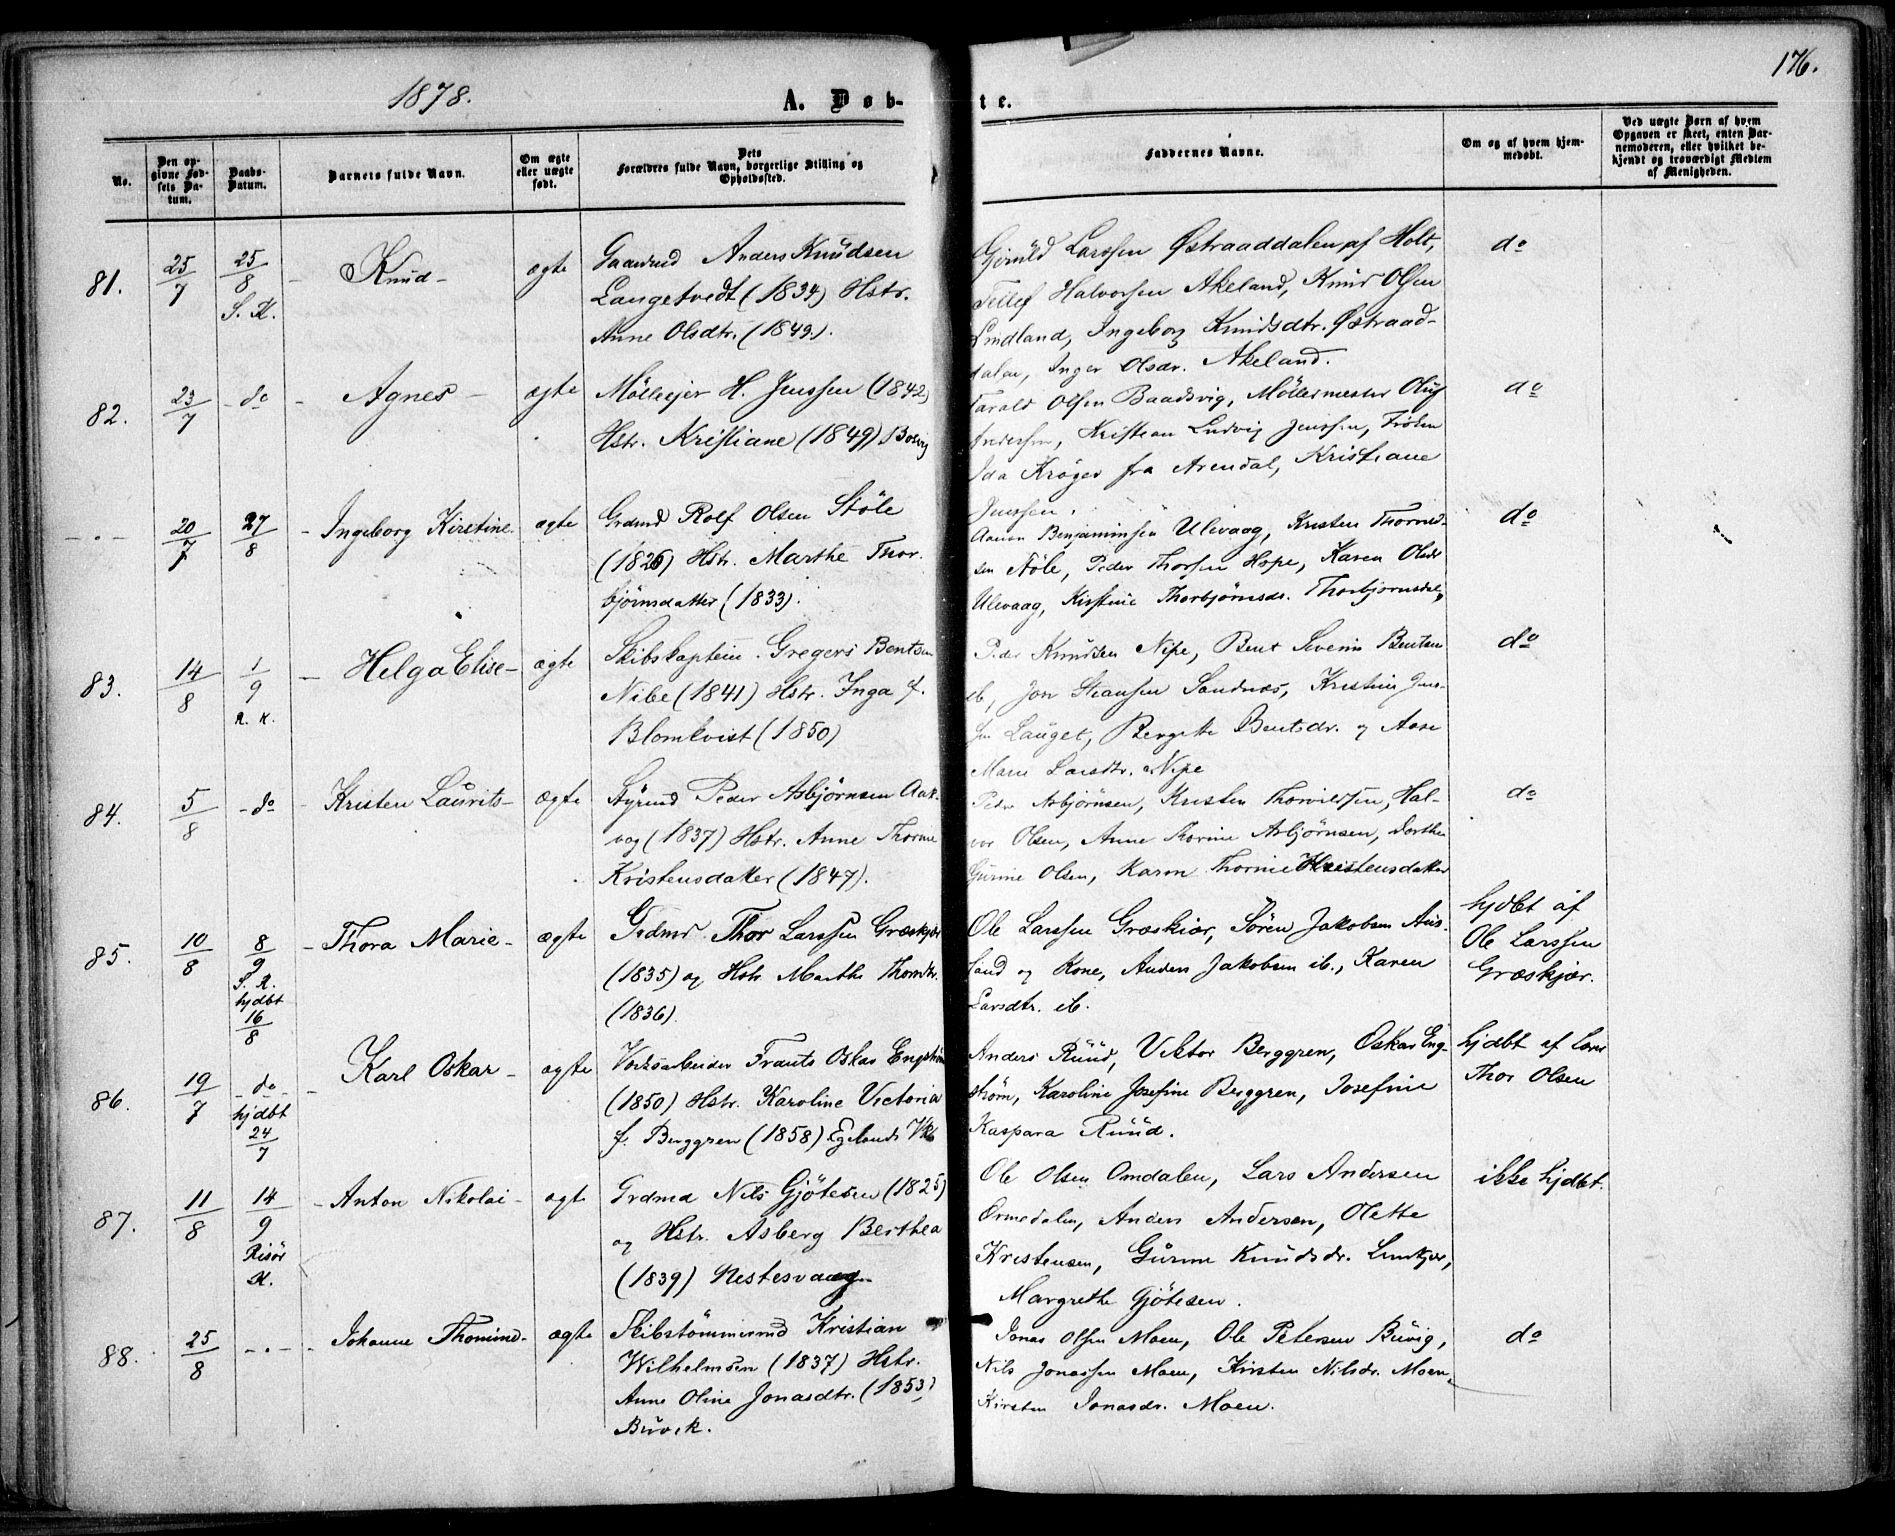 1878.
A. Døb-
te.
176.
No.
Den op-
givne Fød-
sels Da-
tum.
Daabs-
Datum.
Barnets fulde Navn.
Om ægte
eller uægte
født.
Dets
Forældres fulde Navn, borgerlige Stilling og
Opholdssted.
Faddernes Navne.
Om og af hvem hjem-
medøbt.
Ved uægte Børn af hvem
Opgaven er skeet, enten Bar-
nemoderen, eller hvilket be-
kjendt og troværdigt Medlem
af Menigheden.
81. 25/7 25/8 S. K. - Knud - ægte
Gaardmd Anders Knudsen
Langetvedt (1834) Hstr.
Anne Olsdtr. (1849).
Gjeruld Larssen Østraaddalen af Holt,
Tellef Halvorsen Akeland, Knud Olsen
Lindland, Ingeborg Knudsdtr. Østraad-
dalen, Inger Olsdr. Akeland.
do
82. 23/7 - do - Agnes - ægte
Mølleejer H. Jenssen (1842)
Hstr. Kristiane (1849) Bosvig
Tarald Olsen Baadsvig, Møllermester Oluf
Anderssen, Kristian Ludvig Jenssen, Frøken
Ida Krøger fra Arendal, Kristiane
Jenssen.
do
- " - 20/7 27/8 - Ingeborg Kirstine. ægte
Grdmd Rolf Olsen Støle
(1826) Hstr. Marthe Thor-
bjørnsdatter (1833).
Aanon Benjaminsen Ulevaag, Kristen Thormod-
sen Støle, Peder Thorsen Hope, Karen Olsdr
Ulevaag, Kirstine Thorbjørnsdr. Thorbjørnsdal,
do
83. 14/8 1/9 R. K. - Helga Elise - ægte
Skibskaptein Gregers Bentsen
Nibe (1841) Hstr. Inga f.
Blomkvist (1850)
Peder Knudsen Nipe, Bent Severin Bentsen
ib, Jon Steansen Sandnæs, Kristine Jens-
sen Lauget, Bergette Bentsdr. og Aase
Marie Larsdtr. Nipe
do
84. 5/8 - do - Kristen Laurits - ægte
Styrmd Peder Asbjørnsen Aak-
vag (1837) Hstr. Anne Thorine
Kristensdatter (1847).
Peder Asbjørnsen, Kristen Thorvildsen, Hal-
vor Olsen, Anne Thorine Asbjørnsen, Dorthea
Gurine Olsen, Karen Thorine Kristensdatter
do
85. 10/8 8/9 S. K. hjdbt 16/8 - Thora Marie - ægte
Grdmd. Thor Larssen Græskjær
(1835) og Hstr Marthe Thordtr.
(1836).
Ole Larssen Græskjær, Søren Jakobsen Aus-
land og Kone, Anders Jakobsen ib., Karen
Larsdtr. ib.
hjdbt af
Ole Larssen
Græskjær.
86. 19/7 - do - hjdbt 24/7 - Karl Oskar - ægte
Verksarbeider Frants Oskar Engstrøm
(1850) Hstr. Karoline Victoria
f. Berggren (1858) Egelands Vk
Anders Ruud, Viktor Berggren, Oskar Eng-
strøm, Karoline Josefine Berggren, Josefine
Kaspara Ruud.
hjdbt af Lærer
Thor Olsen
87. 11/8 14/9 Risør K. - Anton Nikolai - ægte
Grdmd Nils Gjøtesen (1825)
og Hstr. Asberg Berthea
(1839) Nestesvaag
Ole Olsen Omdalen, Lars Andersen
Ormedalen, Anders Andersen, Olette
Kristensen, Gurine Knudsdr. Lindkjær,
Margrethe Gjøtesen.
ikke hjdbt.
88. 25/8 - " - - Johanne Thomine - ægte
Skibstømmermd Kristian
Wilhelmsen (1837) Hstr.
Anne Oline Jonasdtr. (1853)
Buvik.
Jonas Olsen Moen, Ole Petersen Buvig,
Nils Jonassen Moen, Kirsten Nilsdr. Moen,
Kirsten Jonasdr. Moen.
do